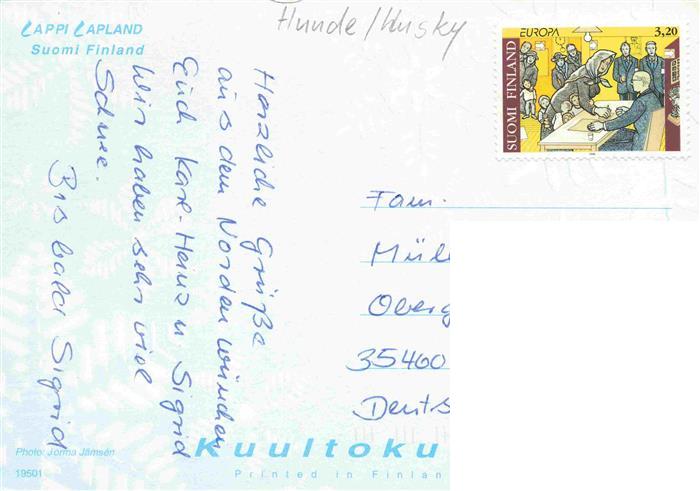 LAPPI LAPLAND
Suomi Finland
Hunde/Husky
EUROPA 3,20
SUOMI FINLAND
Herzliche Grüße
aus dem Norden wünschen
Euch Karl-Heinz u Sigrid
Wir haben sehr viel
Schnee.
Bis bald Sigrid
Fam.
Mül
Oberg
35460
Deuts
Photo: Jorma Jämsén
19501
Kuultoku
Printed in Finlan